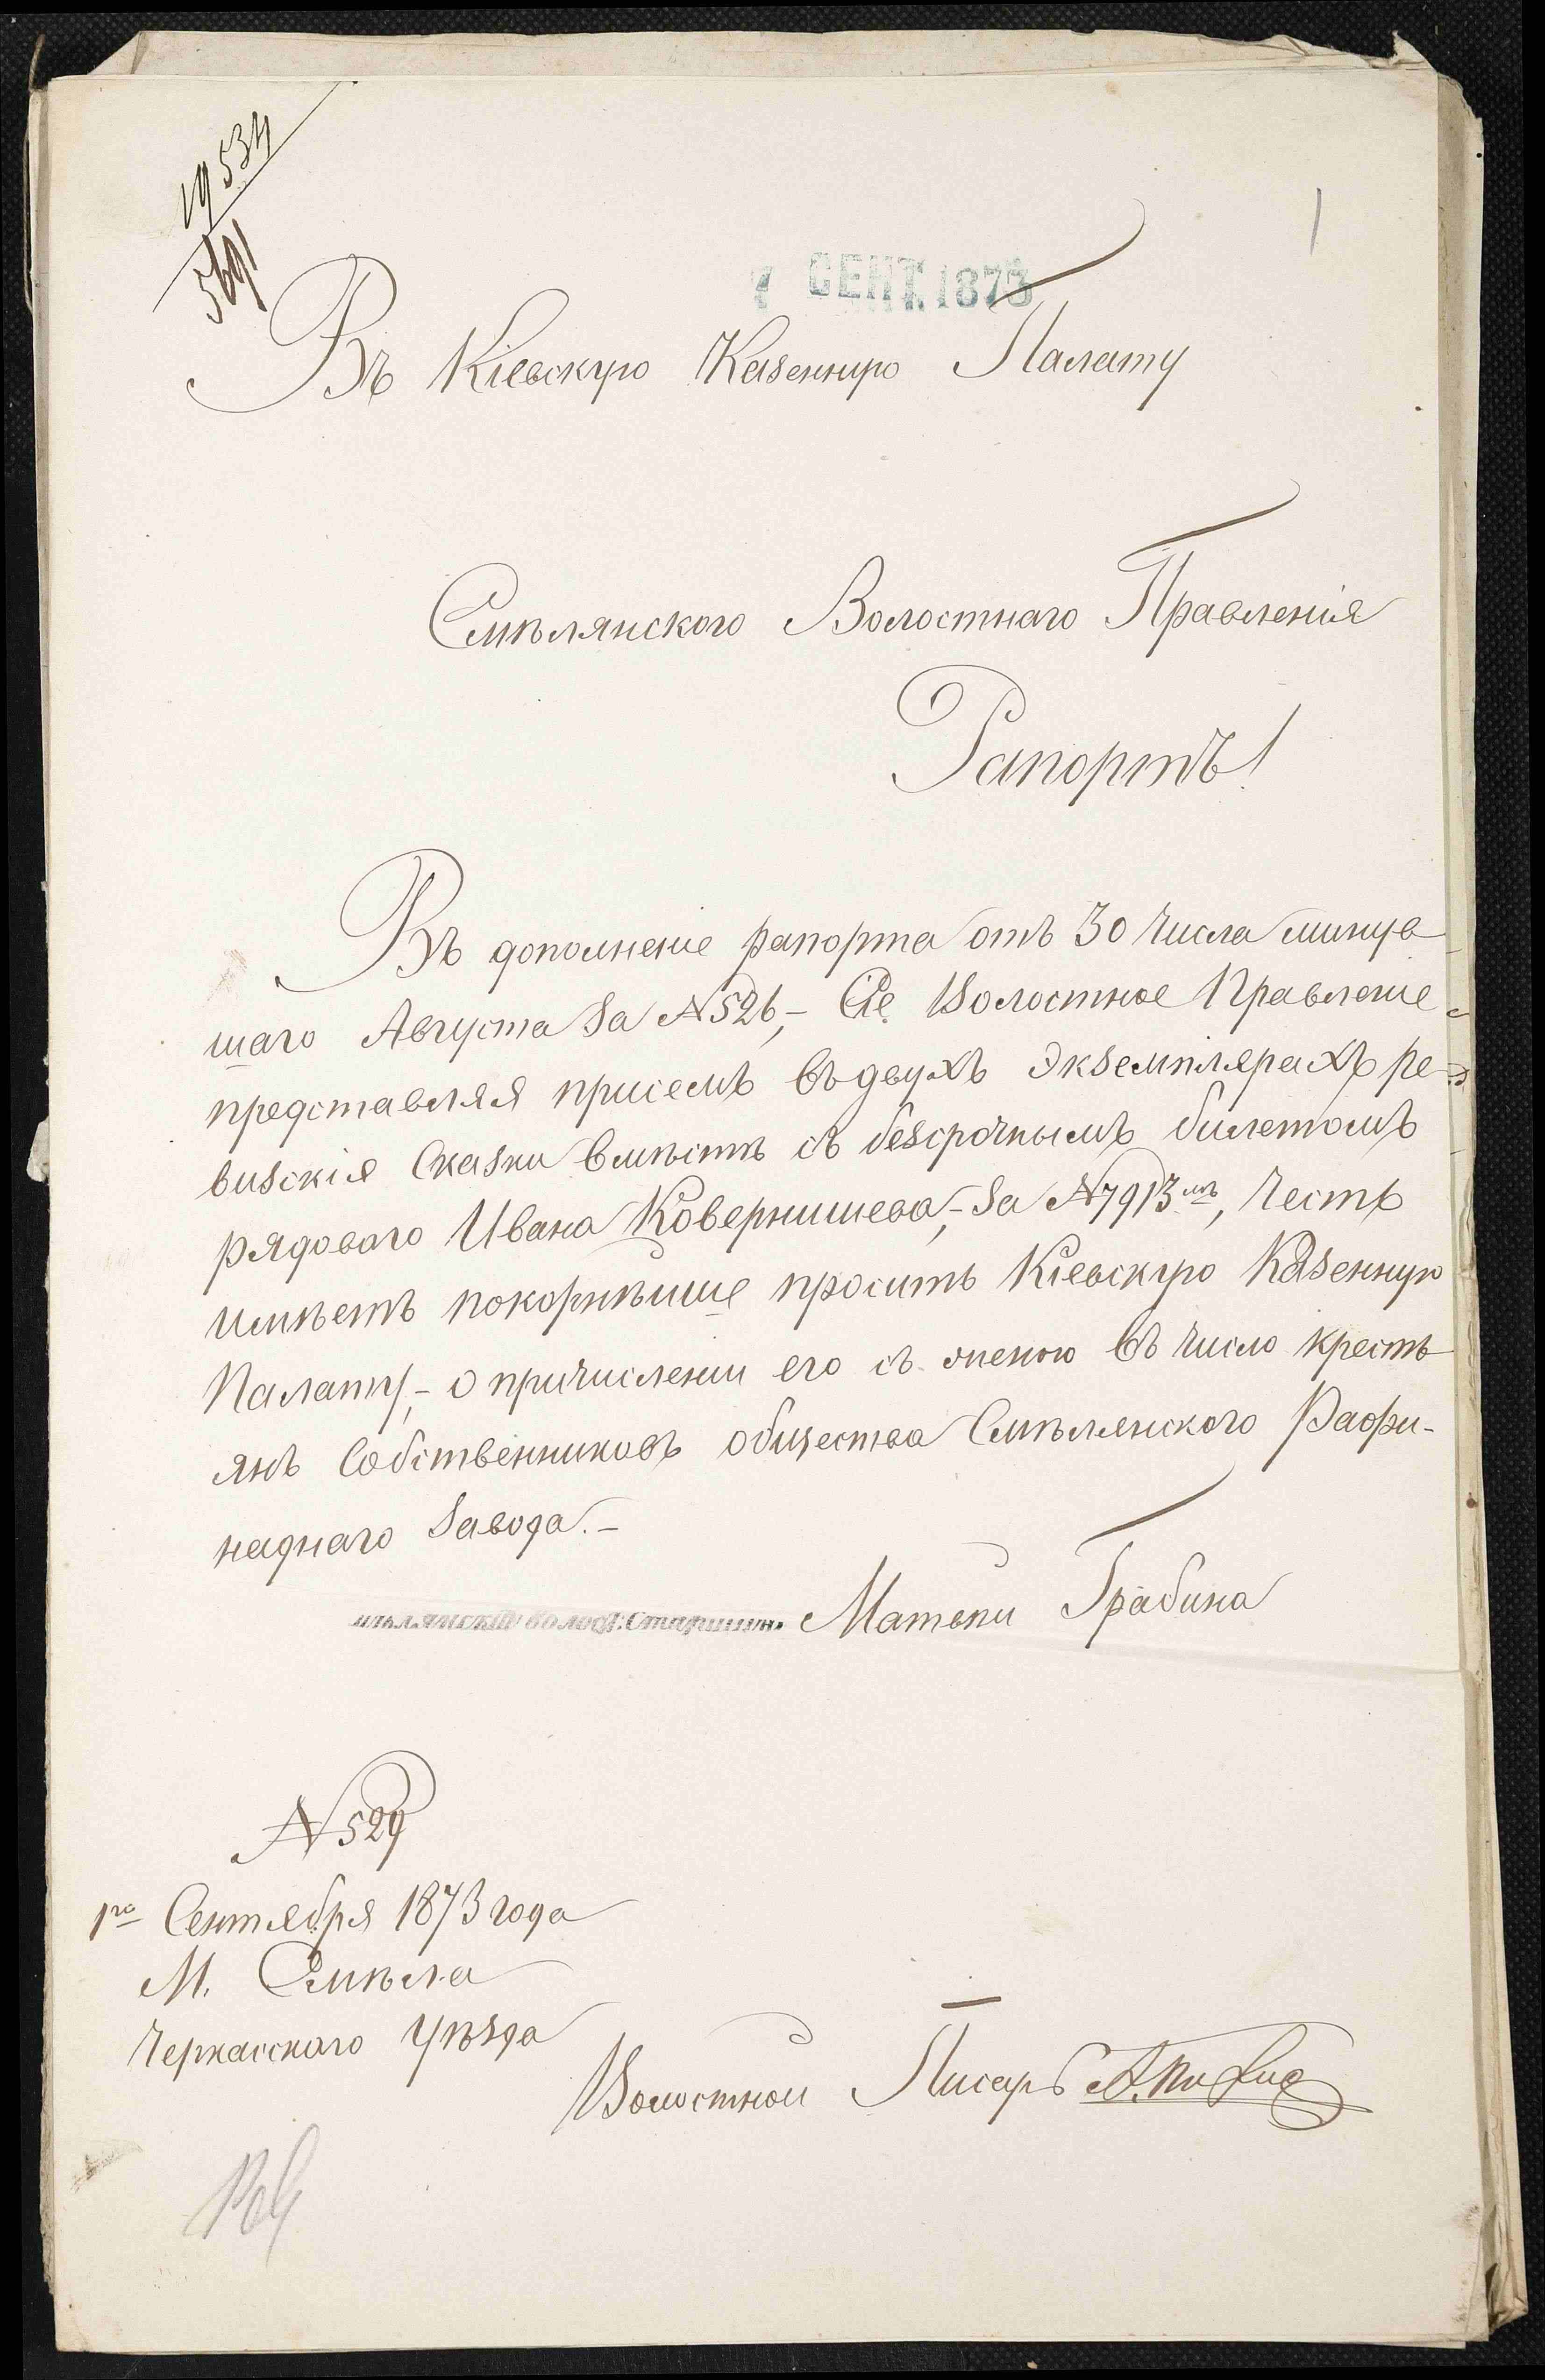 19534
5691
1
7 СЕНТ. 1873
Въ Кіевскую Казенную Палату
Смѣлянского Волостнаго Правленія
Рапортъ!
Въ дополненіе рапорта отъ 30 числа минув
шаго Августа за №526,- Сіе Волостное Правленіе
представляя присемъ въ двухъ экземплярахъ ре-
визскія Сказки вмѣстѣ съ безсрочнымъ билетомъ
рядоваго Ивана Ковернишева,- за №7913мъ, Честь
имѣетъ покорнѣише просить Кіевскую Казенную
Палату,- о причисленіи его съ женою въ число кресть
янъ Собственниковъ общества Смѣлянского Рафи-
наднаго Завода.-
мѣлянскій волост. Старшина Матвѣи Грабина
№529
1го Сентября 1873 года
М. Смѣла
Черкасскаго Уѣзда
Волостнои Писарь